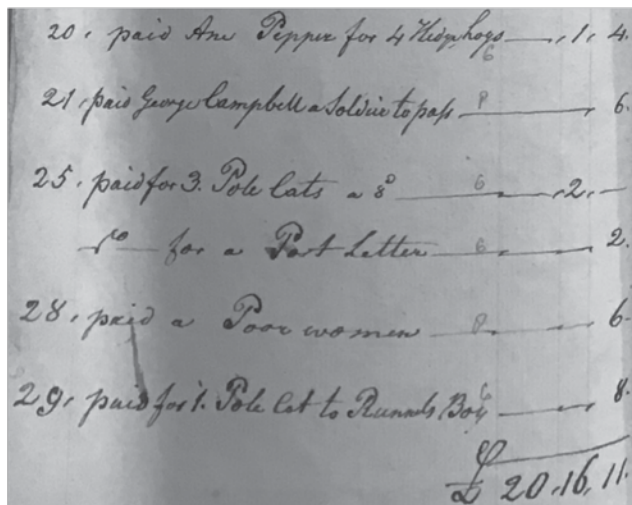 20, paid Ann Pepper for 4 Hedge hogs — ,1, 4.
6
21, paid George Campbell a Soldier to pass P — 6.
25, paid for 3. Pole Cats a 8d 6 — ,2, —
do — for a Post Letter 6 — 2.
28, paid a Poor women P — 6.
29, paid for 1. Pole Cat to Runnels Boy 6 — 8.
£ 20,16,11.